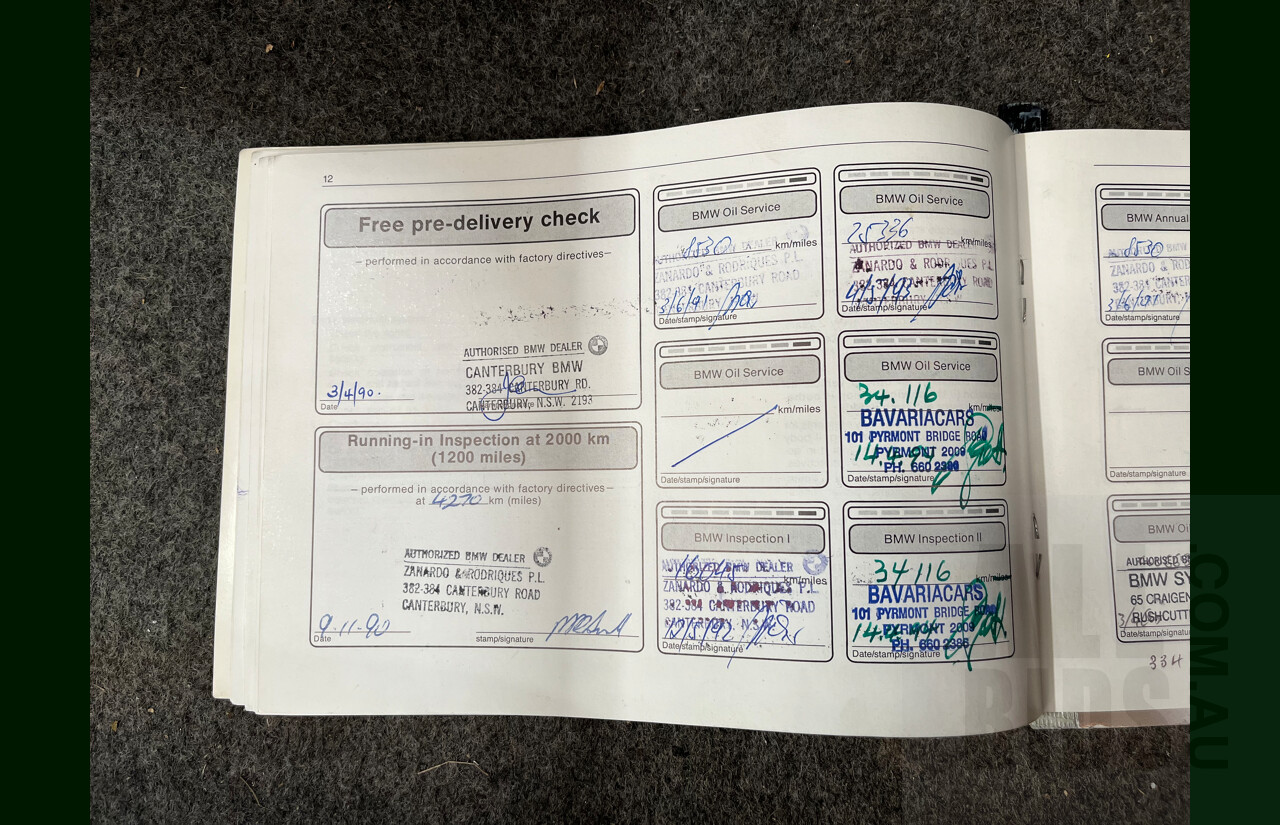 12
Free pre-delivery check
– performed in accordance with factory directives –
AUTHORISED BMW DEALER
CANTERBURY BMW
382-384 CANTERBURY RD.
CANTERBURY, N.S.W. 2193
3/4/90.
Date
Running-in Inspection at 2000 km
(1200 miles)
– performed in accordance with factory directives –
at 4270 km (miles)
AUTHORIZED BMW DEALER
ZANARDO & RODRIQUES P.L.
382-384 CANTERBURY ROAD
CANTERBURY, N.S.W.
9-11-90
Date
stamp/signature
BMW Oil Service
8530 km/miles
AUTHORIZED BMW DEALER
ZANARDO & RODRIQUES P.L.
382-384 CANTERBURY ROAD
3/6/91
Date/stamp/signature
BMW Oil Service
km/miles
Date/stamp/signature
BMW Inspection I
km/miles
AUTHORIZED BMW DEALER
ZANARDO & RODRIQUES P.L.
382-384 CANTERBURY ROAD
CANTERBURY, N.S.W.
Date/stamp/signature
BMW Oil Service
25336
km/miles
AUTHORIZED BMW DEALER
ZANARDO & RODRIQUES P.L.
382-384 CANTERBURY ROAD
Date/stamp/signature
BMW Oil Service
34.116
km/miles
BAVARIACARS
101 PYRMONT BRIDGE ROAD
PYRMONT 2009
PH. 660 2386
Date/stamp/signature
BMW Inspection II
34116
km/miles
BAVARIACARS
101 PYRMONT BRIDGE ROAD
PYRMONT 2009
PH. 660 2386
Date/stamp/signature
BMW Annual
8530
ZANARDO & ROD
382-384 CANTERBU
Date/stamp/signature
BMW Oil S
Date/stamp/signature
BMW Oi
AUTHORISED B
BMW SY
65 CRAIGEN
RUSHCUTT
Date/stamp/signatu
334
ALL
BIDS
.COM.AU